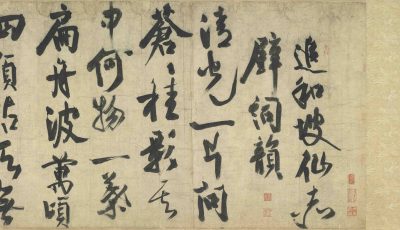 追和坡仙赤
壁詞韻
清光一片問
蒼〻桂影其
中何物一葉
扁舟波萬頃
四顧粘天無